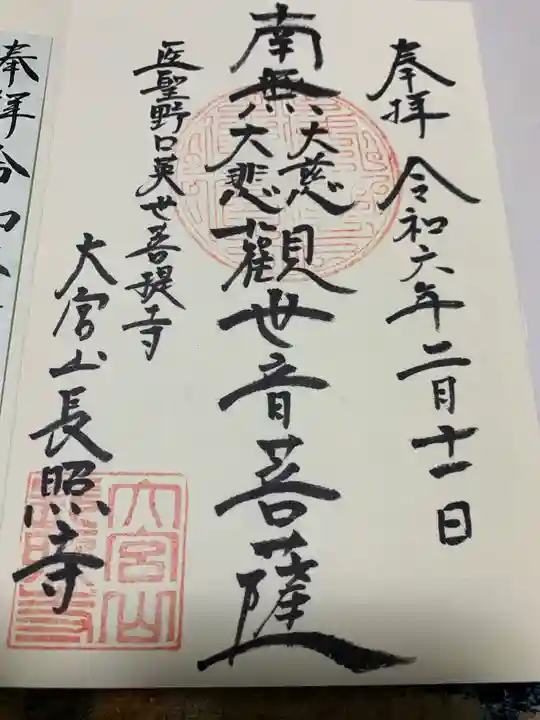 奉拝 令和六年二月十一日
南無大慈大悲觀世音菩薩
医聖野口英世菩提寺
大宮山長照寺
大宮山
長照寺
奉拝 令和六